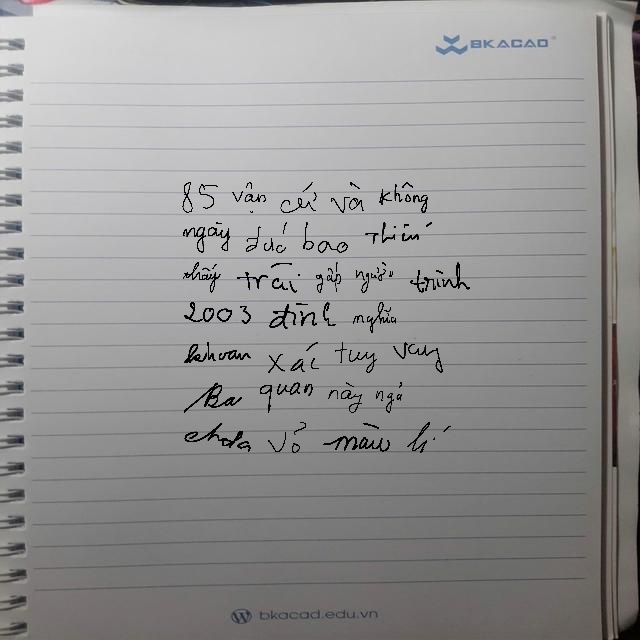 BKACAD
85 vận cứ và không
ngày đức bao Thiếu
thấy trãi gấp người trình
2003 đình nghĩa
khoan xác tuy vay
Ba quan này ngã
chda vỏ màu lí
bkacad.edu.vn